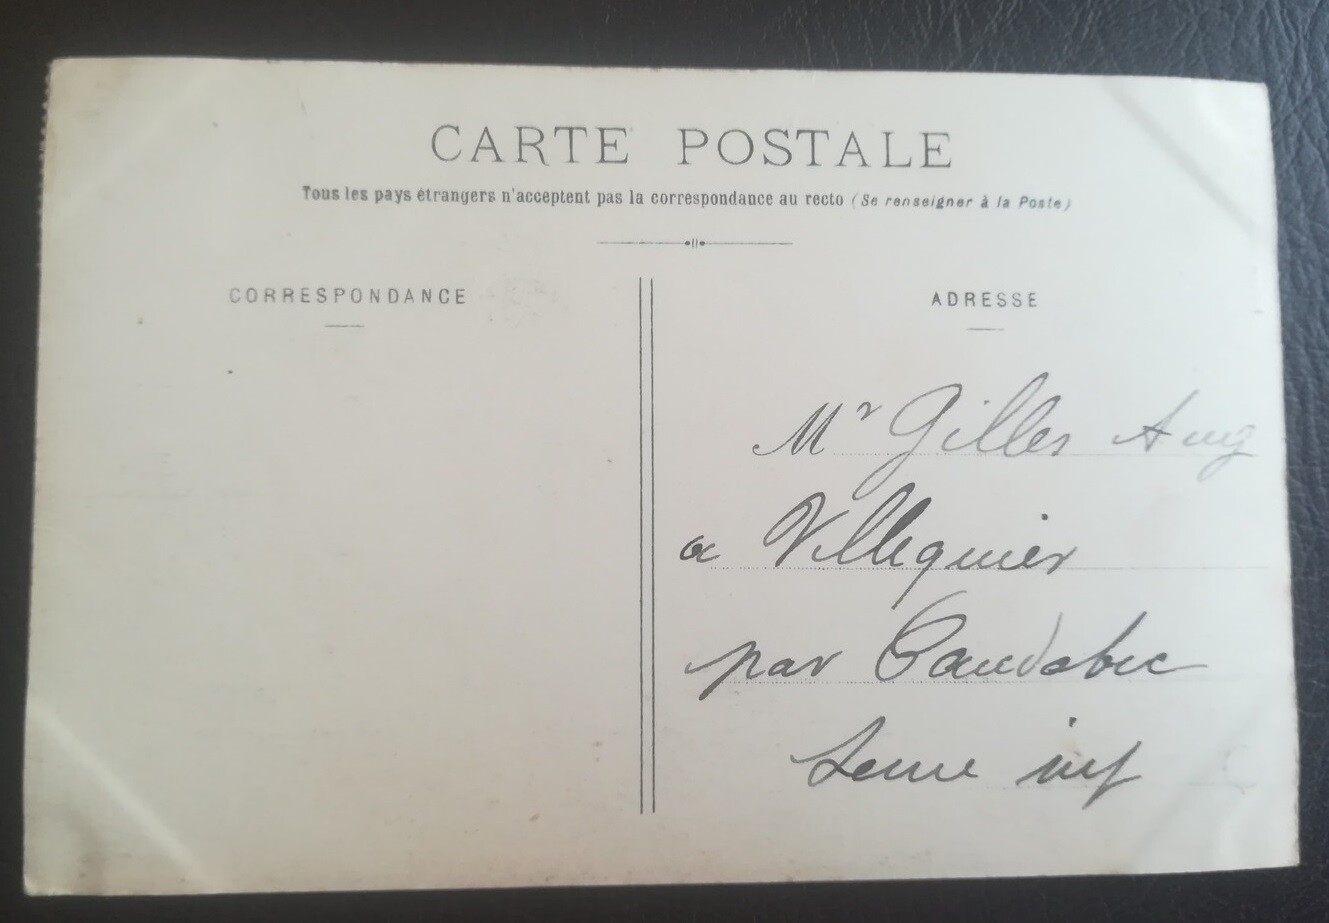 CARTE POSTALE
Tous les pays étrangers n'acceptent pas la correspondance au recto (Se renseigner à la Poste)
CORRESPONDANCE
ADRESSE
Mr Gilles Aug
a Villequier
par Caudebec
Seine inf